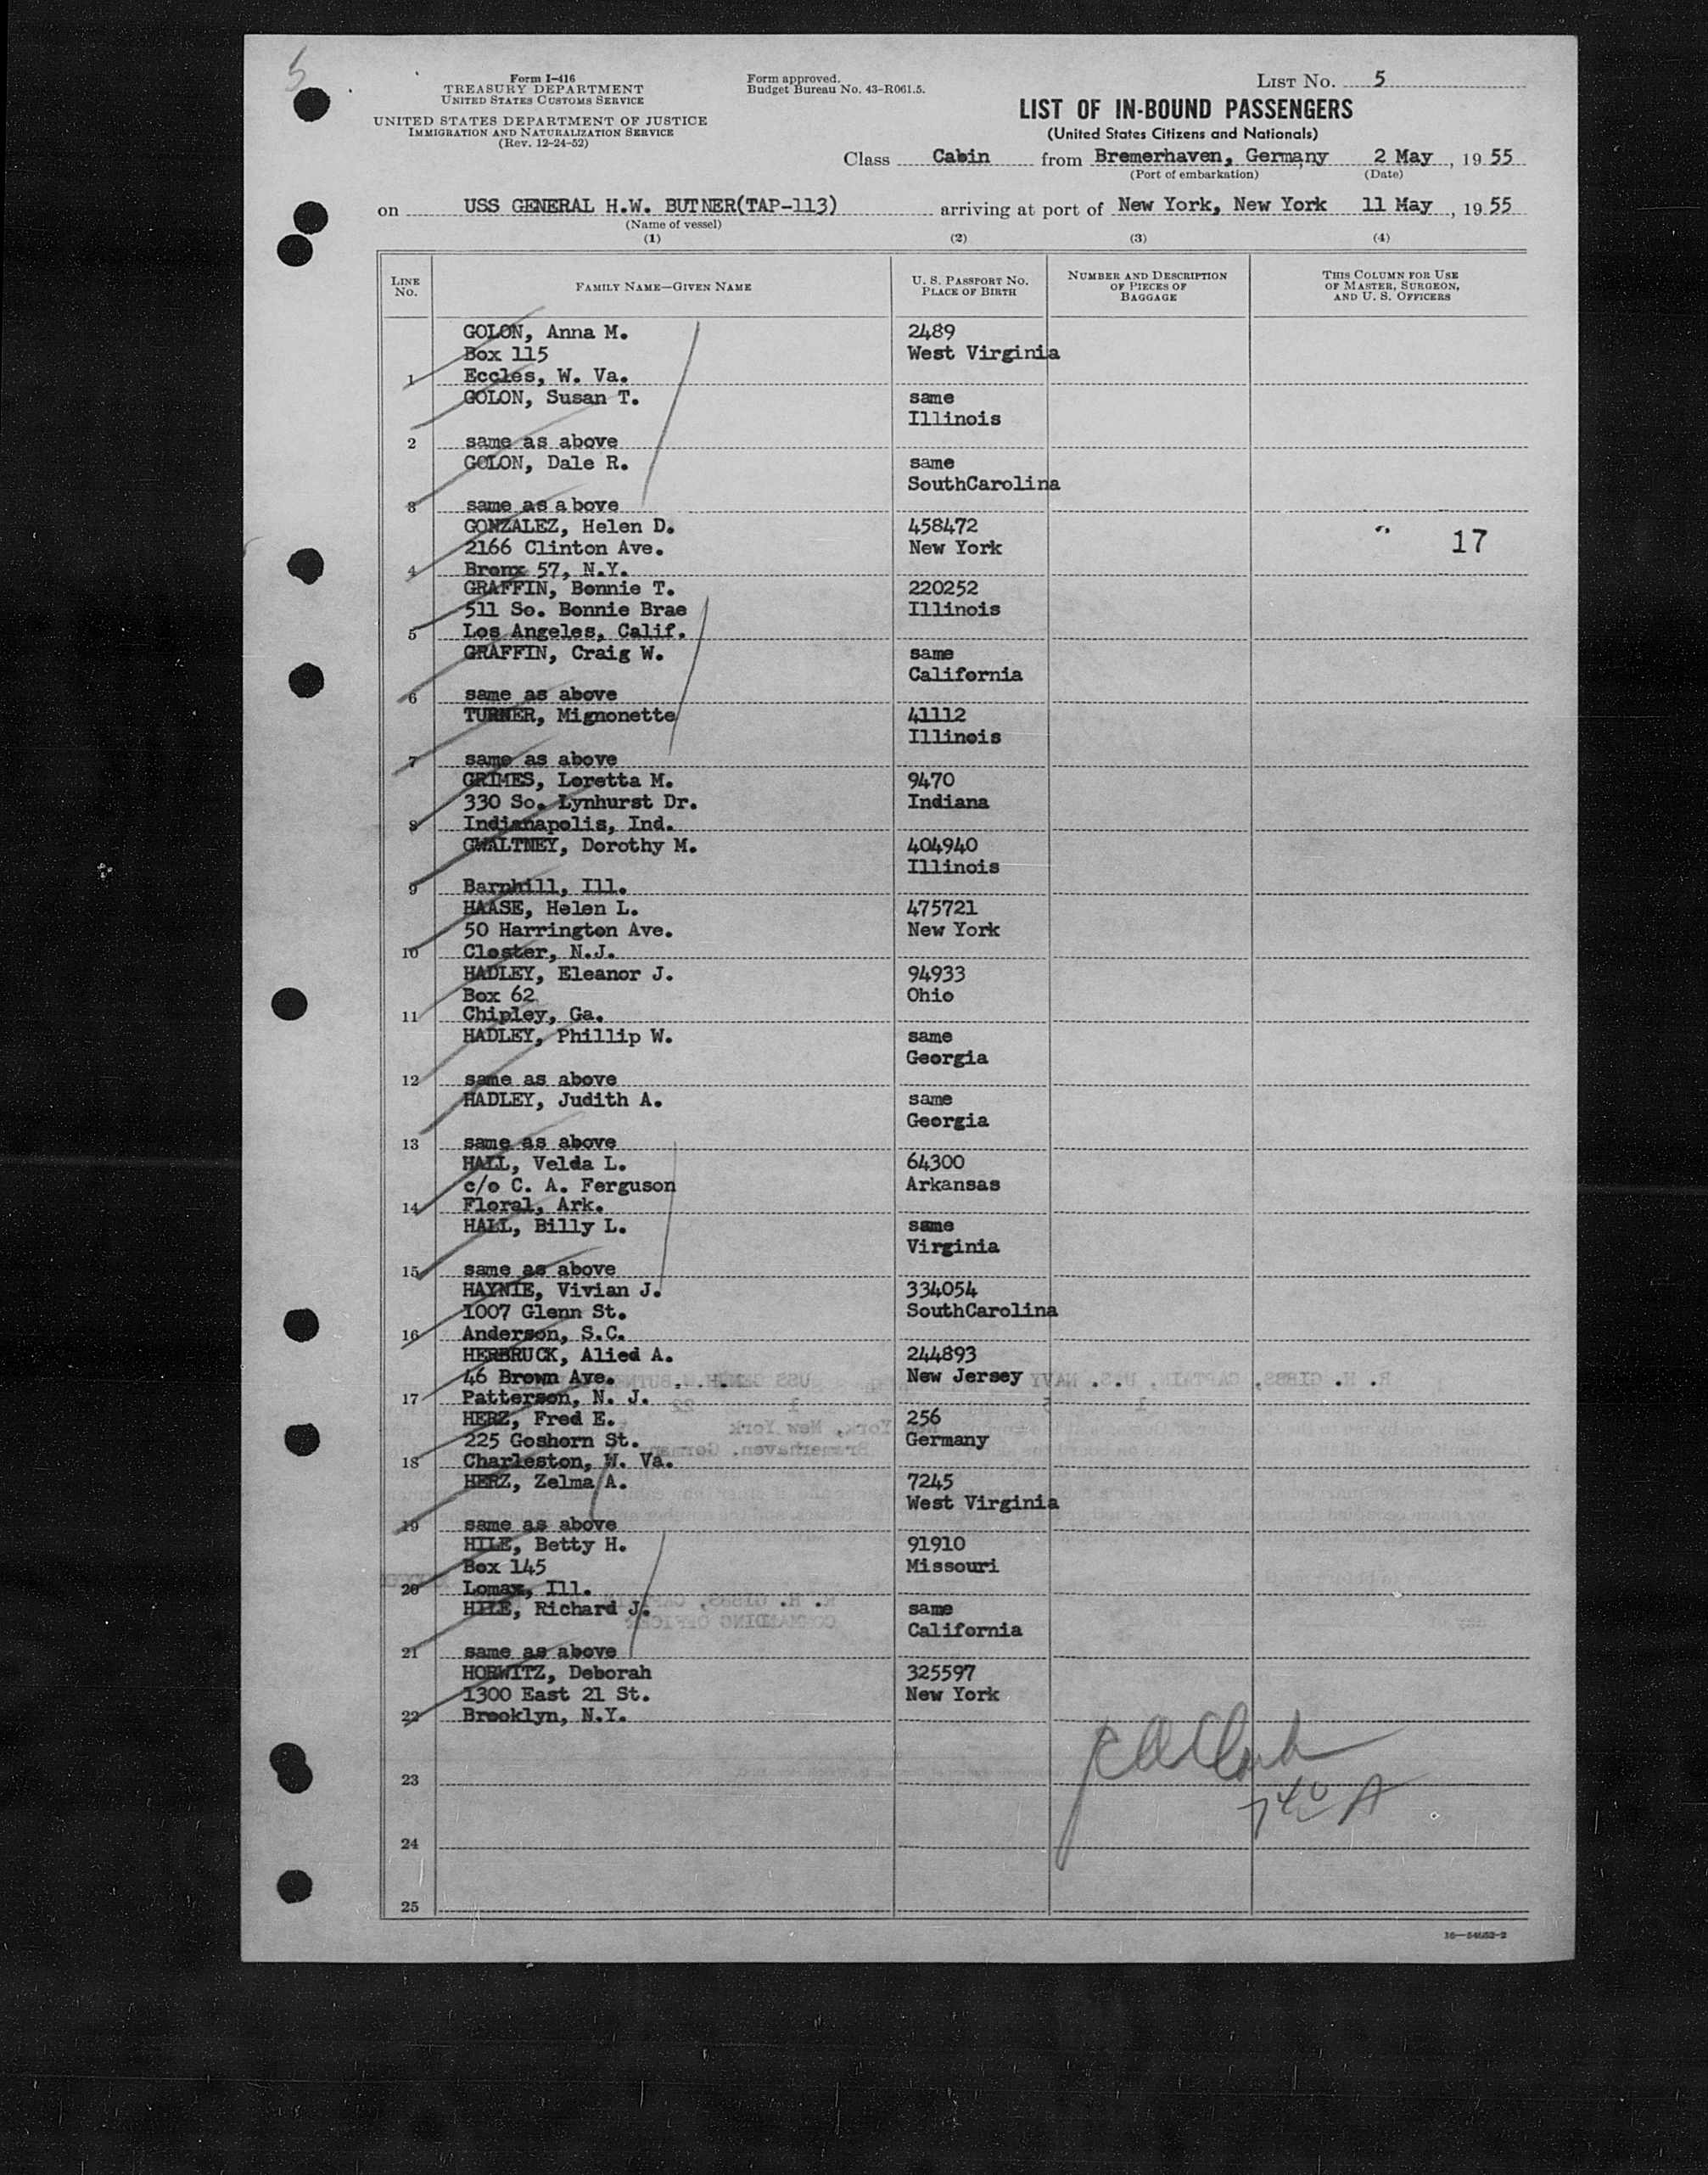 5
Form I-416
TREASURY DEPARTMENT
UNITED STATES CUSTOMS SERVICE
UNITED STATES DEPARTMENT OF JUSTICE
IMMIGRATION AND NATURALIZATION SERVICE
(Rev. 12-24-52)
Form approved.
Budget Bureau No. 43-R061.5.
LIST No. 5
LIST OF IN-BOUND PASSENGERS
(United States Citizens and Nationals)
Class Cabin from Bremerhaven, Germany 2 May, 19 55
(Port of embarkation) (Date)
on USS GENERAL H.W. BUTNER(TAP-113) arriving at port of New York, New York 11 May, 19 55
(Name of vessel)
(1) (2) (3) (4)
LINE No. FAMILY NAME—GIVEN NAME U. S. PASSPORT NO. PLACE OF BIRTH NUMBER AND DESCRIPTION OF PIECES OF BAGGAGE THIS COLUMN FOR USE OF MASTER, SURGEON, AND U. S. OFFICERS
GOLON, Anna M. 2489
Box 115 West Virginia
1 Eccles, W. Va.
GOLON, Susan T. same
Illinois
2 same as above
GOLON, Dale R. same
SouthCarolina
3 same as above
GONZALEZ, Helen D. 458472
2166 Clinton Ave. New York 17
4 Bronx 57, N.Y.
GRAFFIN, Bonnie T. 220252
511 So. Bonnie Brae Illinois
5 Los Angeles, Calif.
GRAFFIN, Craig W. same
California
6 same as above
TURNER, Mignonette 41112
Illinois
7 same as above
GRIMES, Loretta M. 9470
330 So. Lynhurst Dr. Indiana
8 Indianapolis, Ind.
GWALTNEY, Dorothy M. 404940
Illinois
9 Barnhill, Ill.
HAASE, Helen L. 475721
50 Harrington Ave. New York
10 Closter, N.J.
HADLEY, Eleanor J. 94933
Box 62 Ohio
11 Chipley, Ga.
HADLEY, Phillip W. same
Georgia
12 same as above
HADLEY, Judith A. same
Georgia
13 same as above
HALL, Velda L. 64300
c/o C. A. Ferguson Arkansas
14 Floral, Ark.
HALL, Billy L. same
Virginia
15 same as above
HAYNIE, Vivian J. 334054
1007 Glenn St. SouthCarolina
16 Anderson, S.C.
HERBRUCK, Alied A. 244893
46 Brown Ave. New Jersey
17 Patterson, N. J.
HERZ, Fred E. 256
225 Goshorn St. Germany
18 Charleston, W. Va.
HERZ, Zelma A. 7245
West Virginia
19 same as above
HILE, Betty H. 91910
Box 145 Missouri
20 Lomax, Ill.
HILE, Richard J. same
California
21 same as above
HORWITZ, Deborah 325597
1300 East 21 St. New York
22 Brooklyn, N.Y.
23
24
25